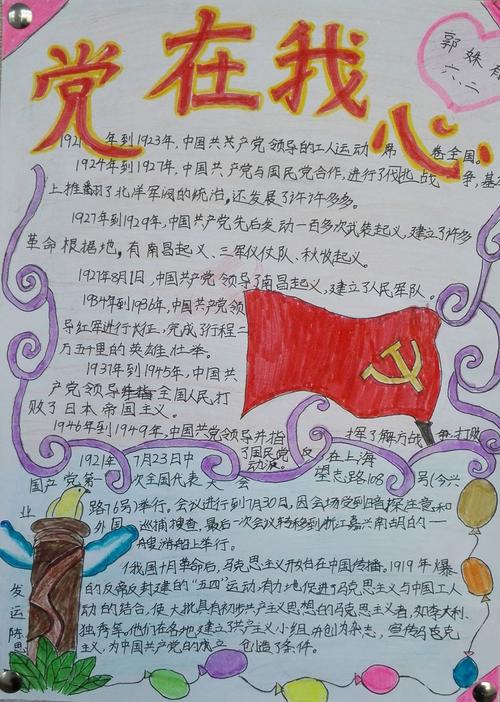 党在我心
郭姝
六、二
1921年到1923年，中国共共产党领导的工人运动席卷全国。
1924年到1927年，中国共产党与国民党合作，进行了伐北战争，基
上推翻了北洋军阀的统治，还发展了许许多多。
1927年到1929年，中国共产党先后发动一百多次武装起义，建立了许多
革命根据地，有南昌起义、三军仪仗队、秋收起义。
1927年8月1日，中国共产党领导了南昌起义，建立了人民军队。
1934年到1936年，中国共产党领
导红军进行长征，完成了行程二
万五千里的英雄壮举。
1937年到1945年，中国共
产党领导并指全国人民打
败了日本帝国主义。
1946年到1949年，中国共产党领导并指挥了解方战争，打败
了国民党反
动派。
1921年7月23日中在上海
国产党第一次全国代表大会望志路108号(今兴
业路76号)举行。会议进行到7月30日，因会场受到暗探注意和
外国巡捕搜查，最后一次会议转移到浙江嘉兴南胡的一
艘游船上举行。
俄国十月革命后，马克思主义开始在中国传播。1919年爆
发的反帝反封建的"五四"运动，有力地促进了马克思主义与中国工人
运动的结合，使大批具有初步共产主义思想的马克思主义者，如李大钊、
陈独秀等。他们在各地建立了共产主义小组，并创为杂志，宣传马克克
思主义，为中国共产党的成立创造了条件。